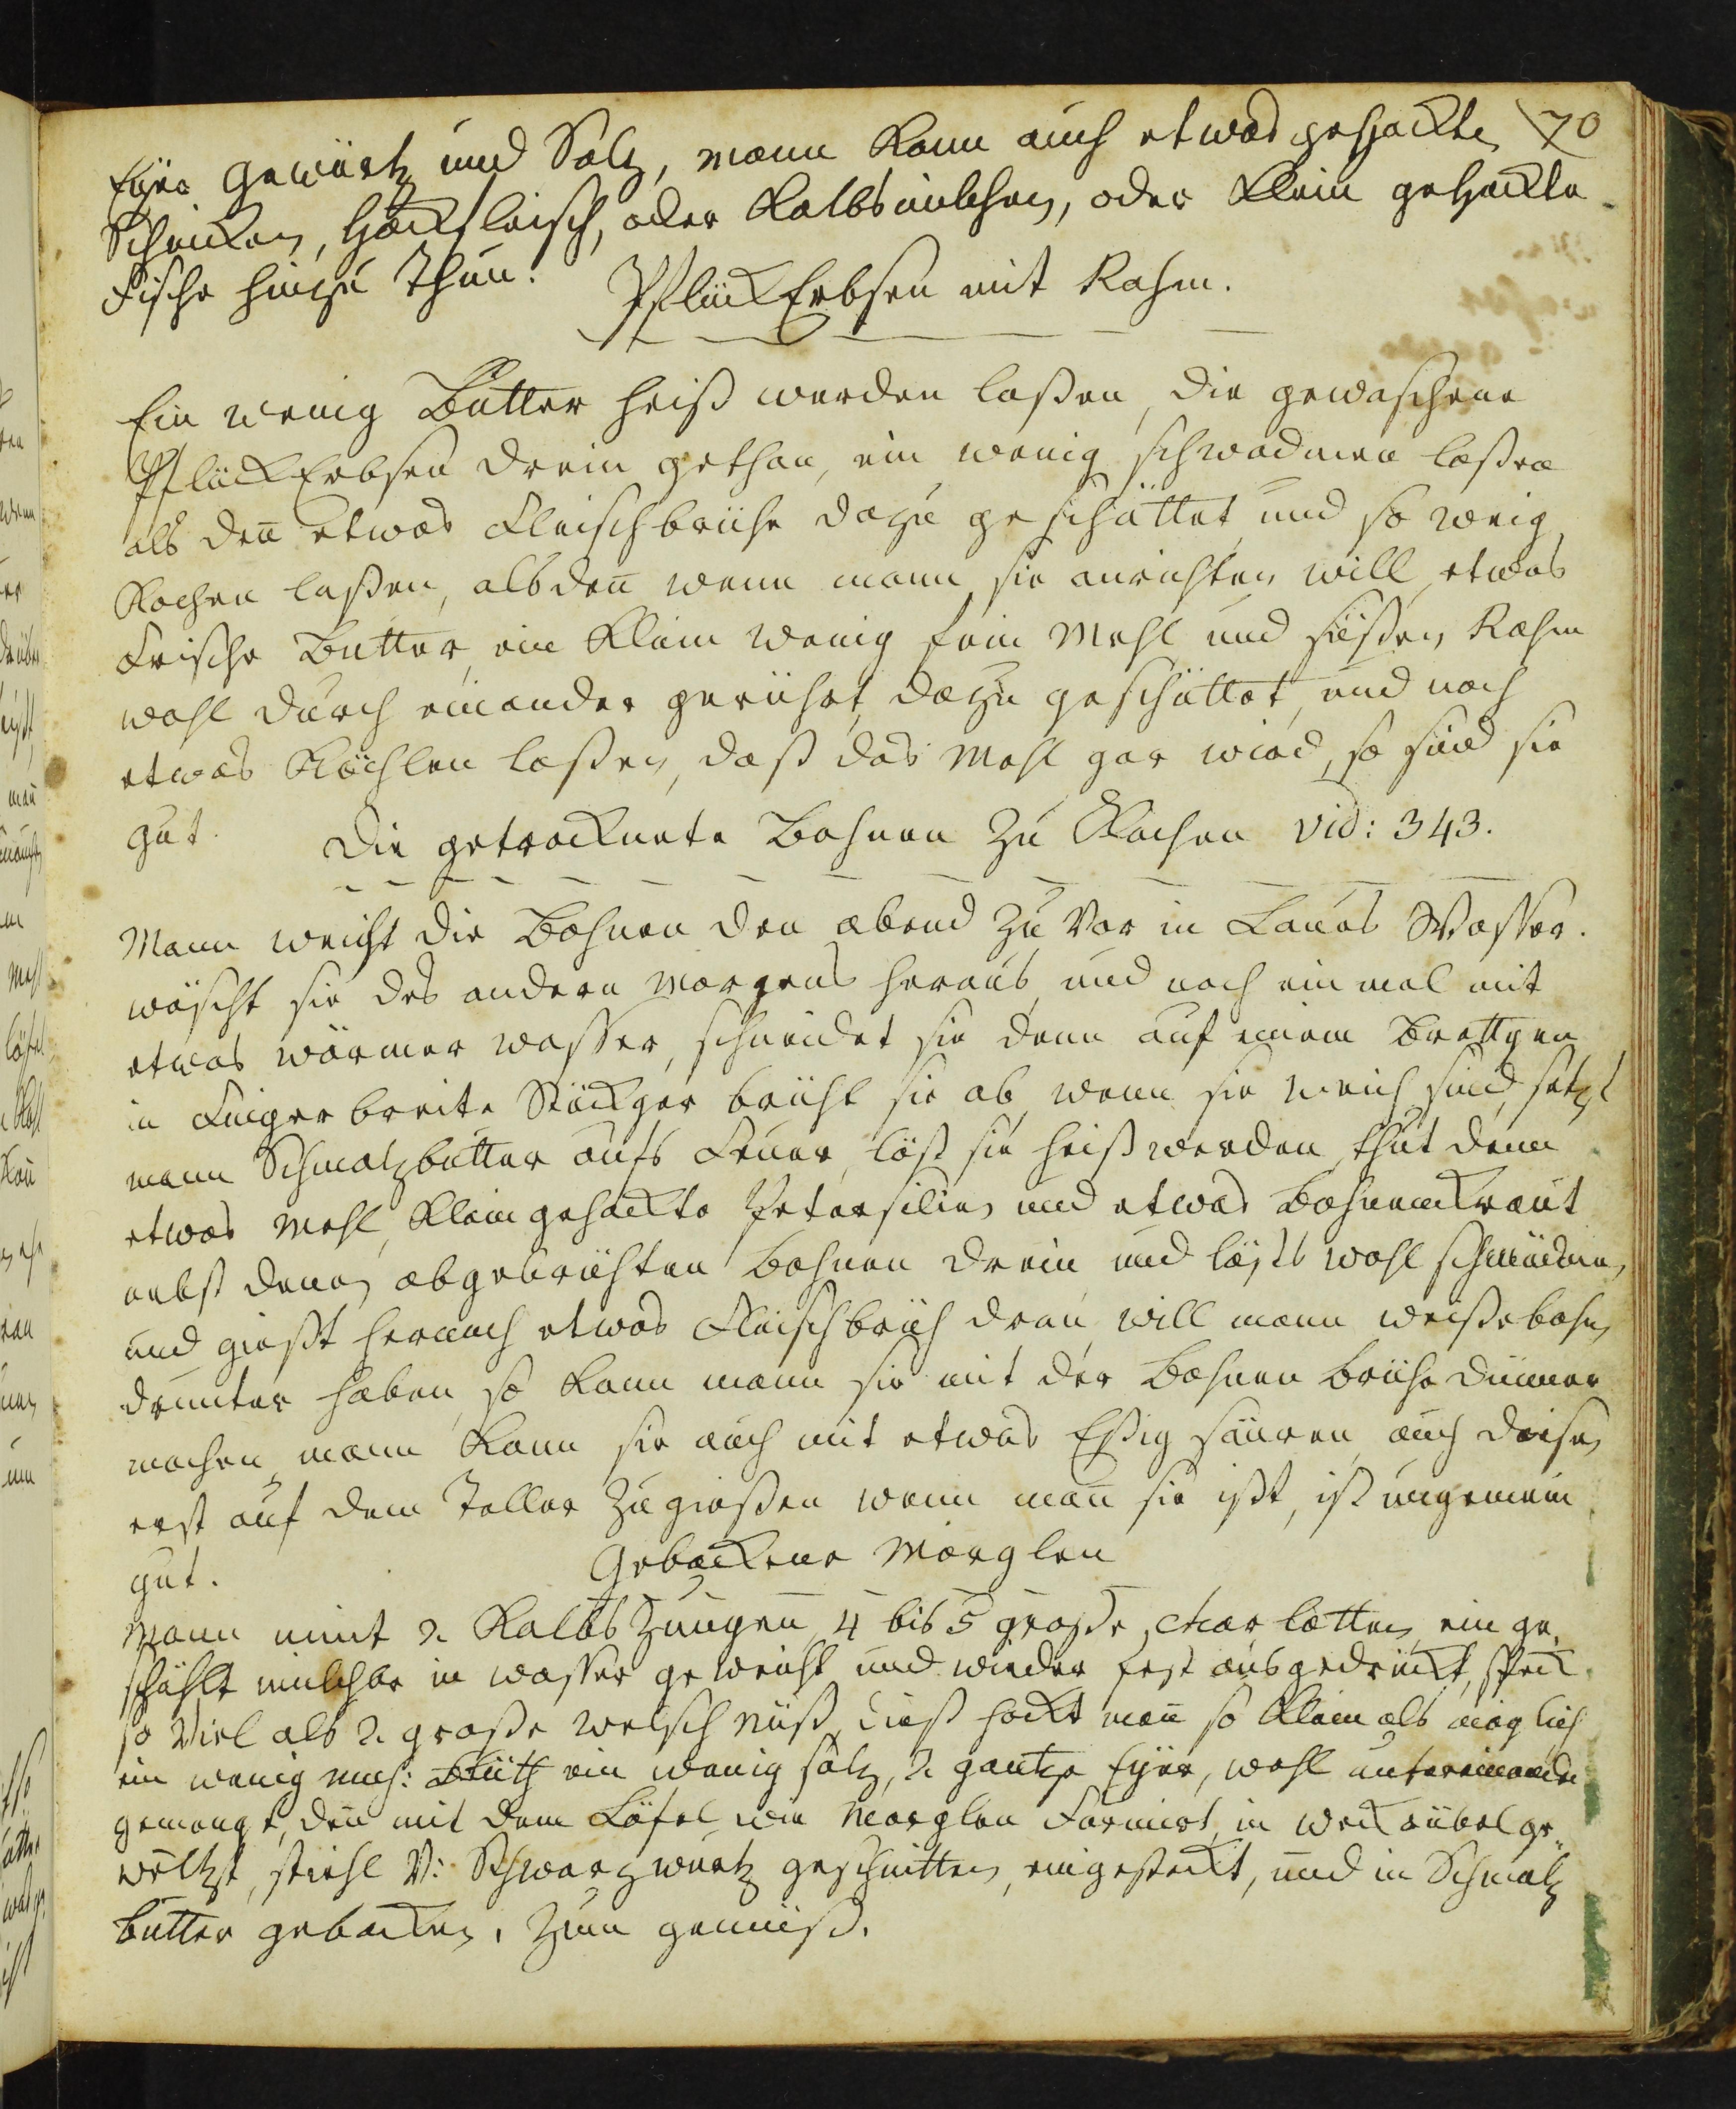 70
Eyer Gewürtz und Saltz, mann kann auch etwas gehackten
Schincken, Hackfleisch, oder Kalbsmilchen, oder klein gehackte
Fische hinzu thun.
Pflück Erbsen mit Rahm.
Ein wenig Butter heiß werden laßen, die gewaschene
Pflück Erbsen drein gethan, ein wenig schwadmen laßen
als den̄ etwas Fleischbrühe dazu geschüttet und so wenig
Kochen laßen, alsden̄ wenn mann sie anrichten will, etwas
Frische Butter, ein klein wenig fein Mehl und süßen Rahm
wohl durch einander gerührt, dazu geschüttet, und noch
etwas Köchlen laßen, daß das Mehl gar wird, so sind sie
gut.
Die getrocknete Bohnen zu Kochen vid: 343.
Mann weicht die Bohnen den abend zu vor in Laues Wasser.
wäscht sie des andern Morgens heraus, und noch ein mal mit
etwas wärmer wasser, schneidet sie denn auf einem Brettgen
in Finger breite Stückger brüht sie ab, wenn sie weich sind, setzt
mann Schmaltzbutter aufs Feuer, läst sie heiß werden, thut denn
etwas Mehl, klein gehackte Petersilien und etwas Bohnenkraut
nebst denen abgebrühten Bohnen drein und läßts wohl
und gießt hernach etwas Fleischbrüh dran, will mann weiße bohn
drunter haben, so kann mann sie mit der Bohnen brühe dünner
machen, mann kann sie auch mit etwas Eßig säuren, auch diesen
erst auf dem Teller zu gießen wenn man̄ sie ißt, ist ungemein
gut.
Gebackene Morglen
Mann nimt 2 Kalbs Zungen, 4 bis 5 große Charlotten, ein ge,
schählt milchbr in wasser geweicht und wieder fest ausgedrückt, Speck
so viel als 2. große welsch Nüß, dieß hackt man̄ so klein als möglich
ein wenig musc: Blüth ein wenig saltz, 2 gantze Eyer, wohl untereinander
gemengt, den̄ mit dem Löfel wie Morglen Formirt, in weck riebel ge,,
weltzt, stiehl v: Schwartzwurtz geschnitten, eingesteckt, und in Schmaltz
butter gebacken, zum gemüß.